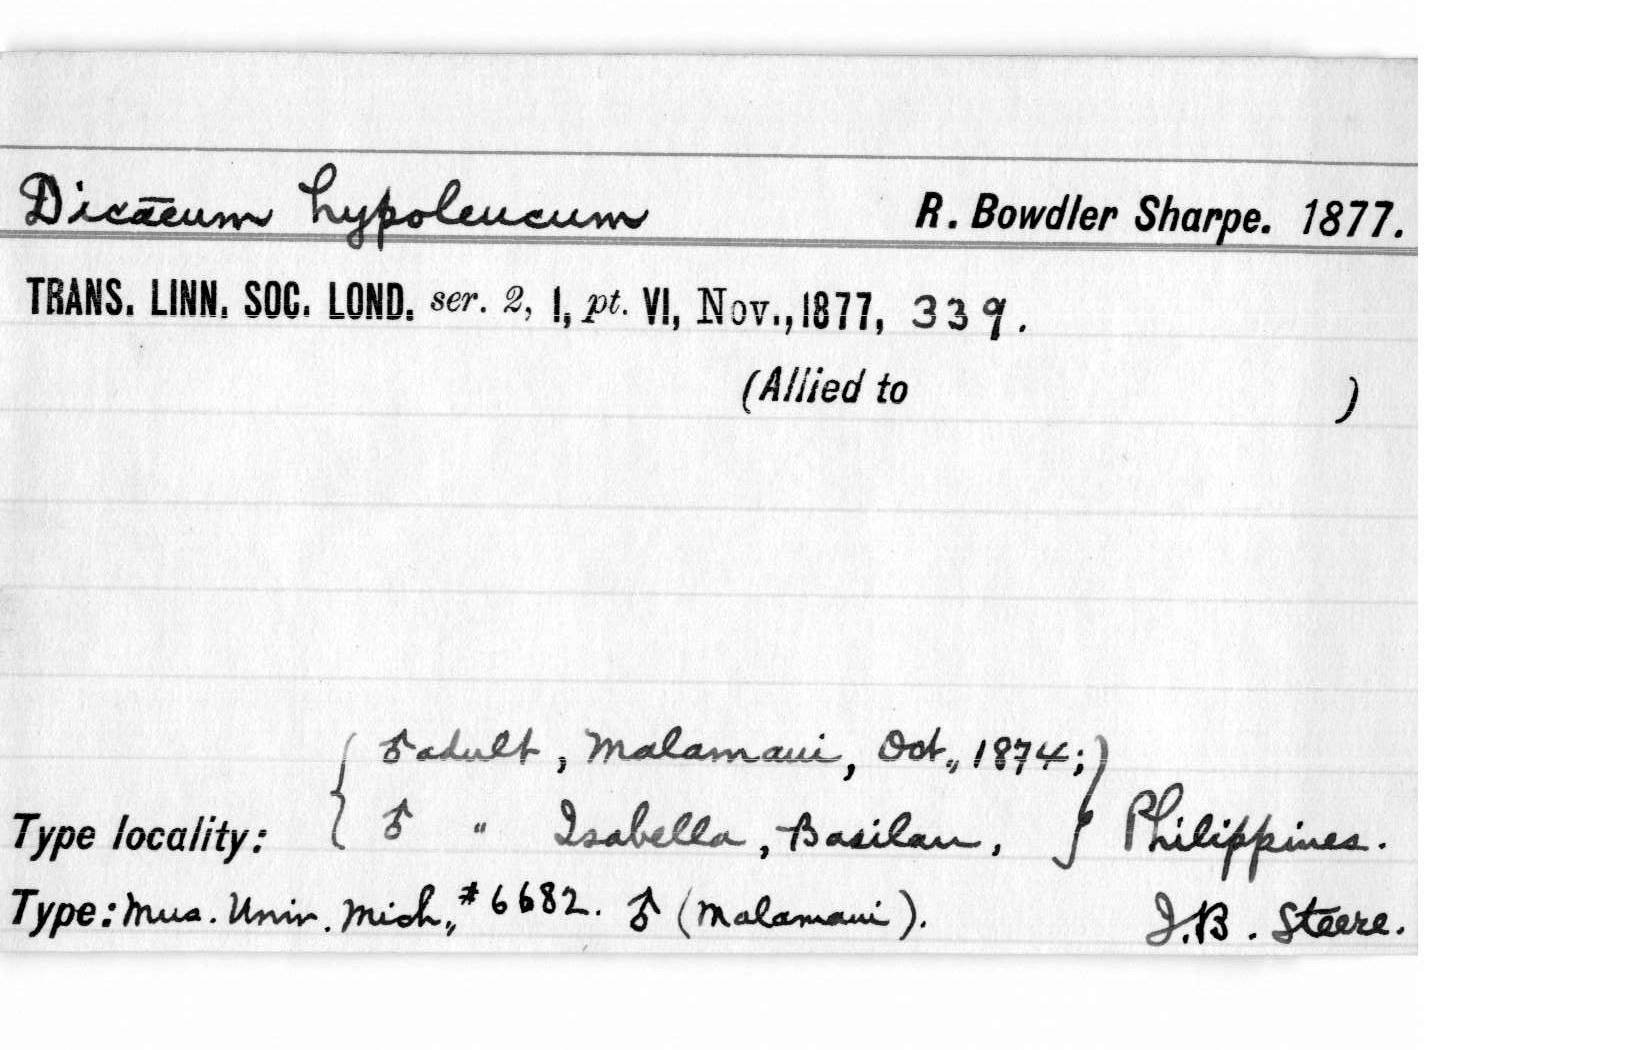 Dicaeum hypoleucum R. Bowdler Sharpe. 1877.
TRANS. LINN. SOC. LOND. ser. 2, I, pt. VI, Nov., 1877, 339.
(Allied to )
♂ adult, Malamaui, Oct., 1874;
Type locality: ♂ " Isabella, Basilan, Philippines.
Type: Mus. Univ. Mich., #6682. ♂ (Malamaui). J.B. Steere.